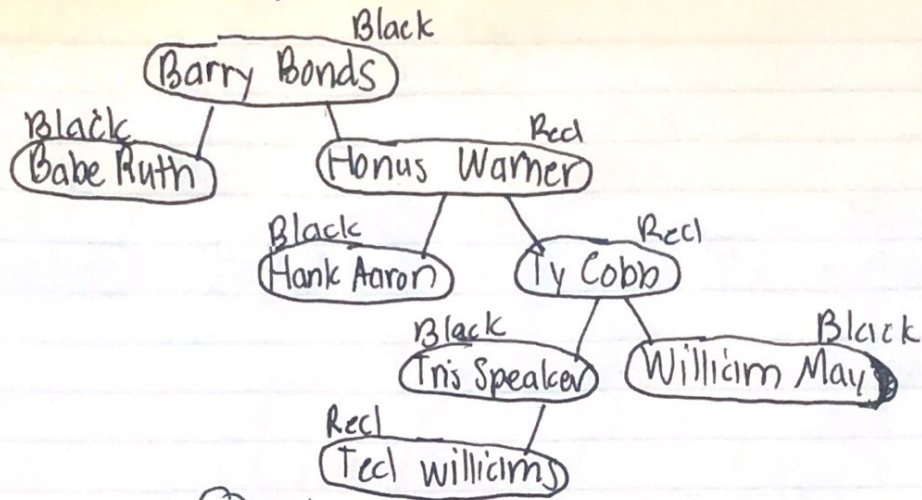 Black
Barry Bonds
Black
Babe Ruth
Red
Honus Warner
Black
Hank Aaron
Red
Ty Cobb
Black
Tris Speaker
Black
William May
Red
Ted williams